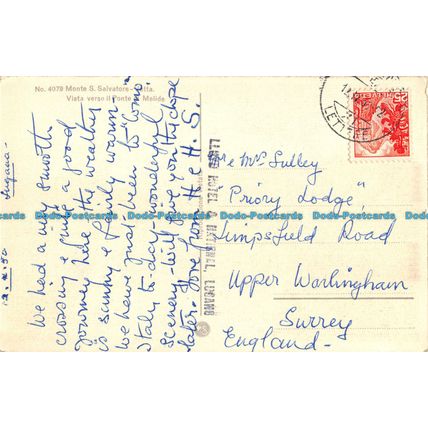 No. 4078 Monte S. Salvatore - Vetta
Vista verso il Ponte di Melide
Lugano -
12.4.50
We had a very smooth
crossing & quite a good
journey here, the weather
is sunny & fairly warm
we have just been to "Como"
Italy to-day - wonderful
scenery - will give you the dope
later - Love from H & H. S.
LLOYD HOTEL & NATIONAL, LUGANO
HELVETIA
LETTRE
Mrs Sulley
"Priory Lodge"
Limpsfield Road
Upper Warlingham
Surrey
England -
Dodo-Postcards Dodo-Postcards Dodo-Postcards Dodo-Postcards